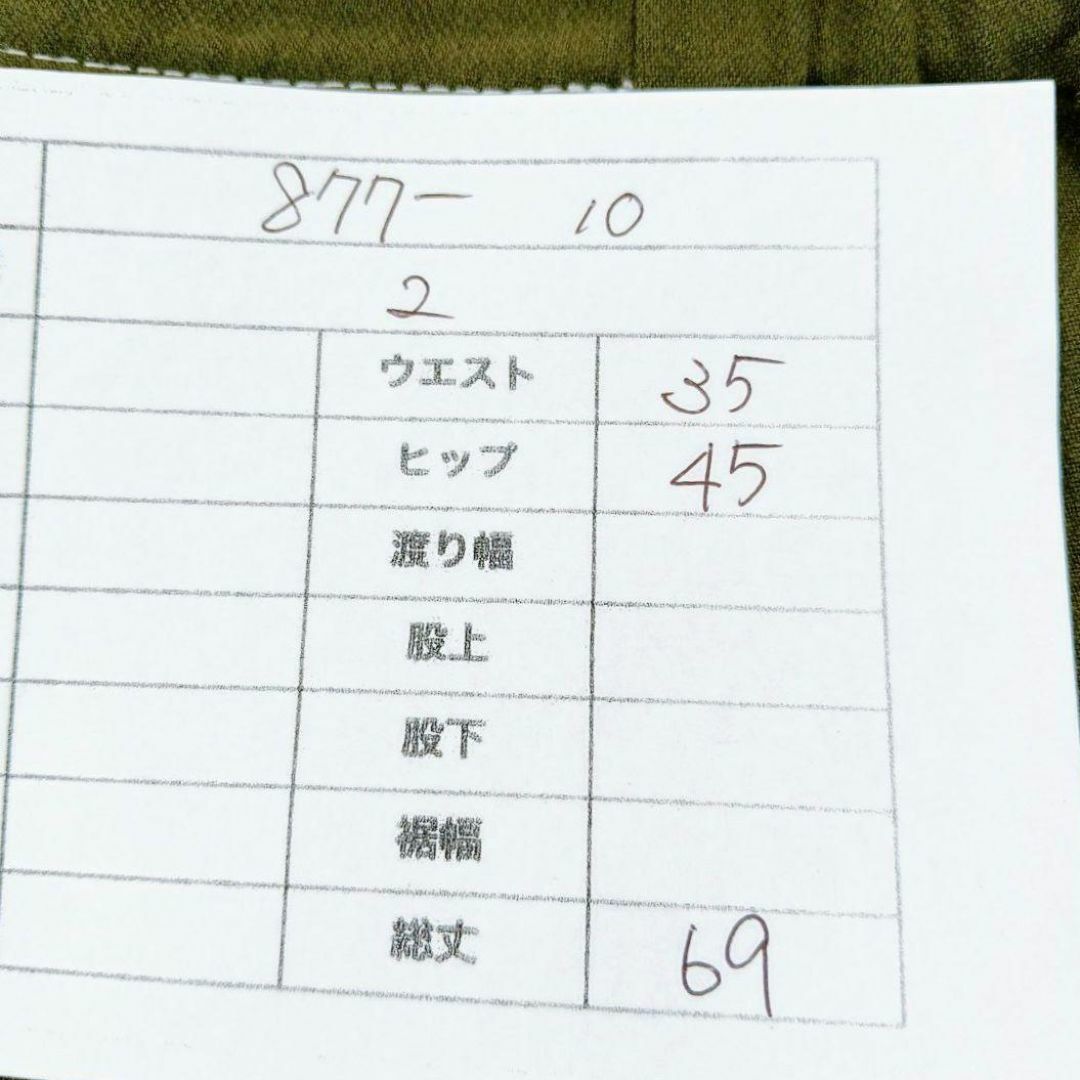 877- 10
2
ウエスト 35
ヒップ 45
渡り幅
股上
股下
裾幅
総丈 69